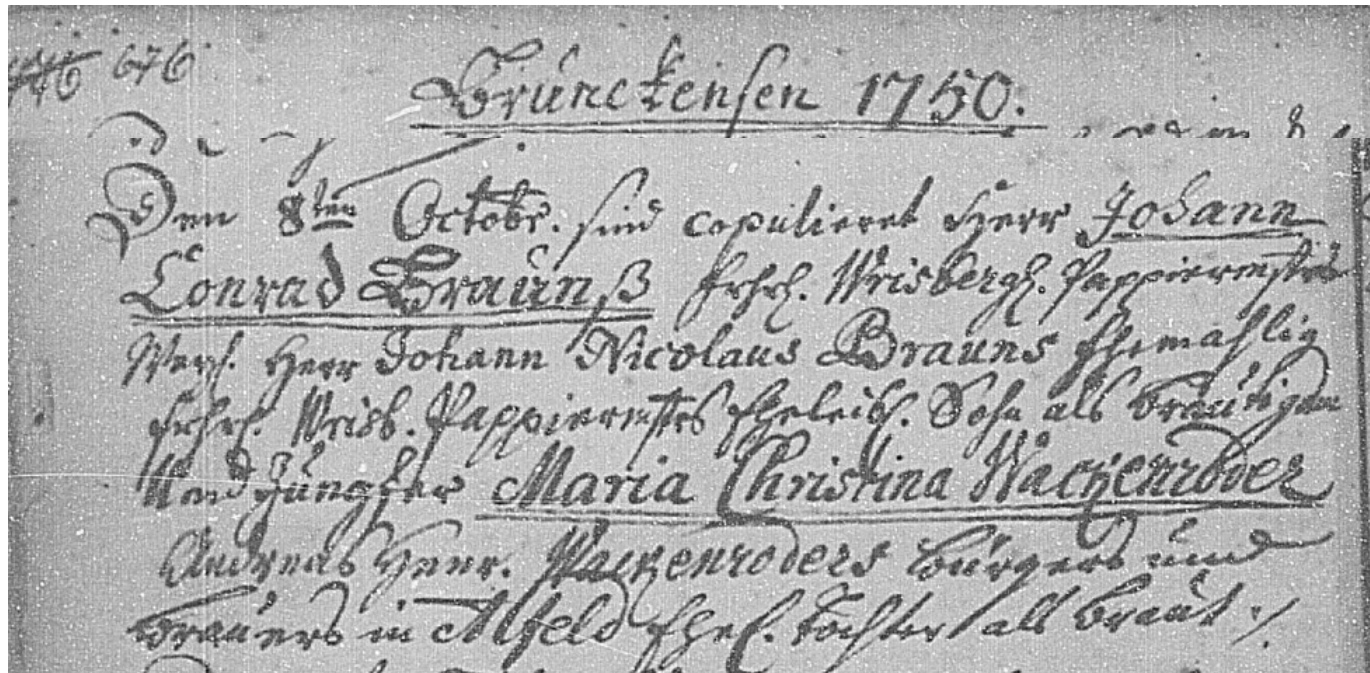 676
Brünckensen 1750.
Den 8ten Octobr. sind copulieret Herr Johann
Conrad Braunß frhrl. Wrisbergl. Pappiermstr
Herr Johann Nicolaus Brauns Ehemahlig
frhrl. Wrisb. Pappiermstrs Eheleibl. Sohn als Bräutigam
Und Jungfer Maria Christina Wackenroder
Andreas Henr. Wackenroders Bürgers und
Brauers in Alfeld Ehel. Tochter als Braut ./.